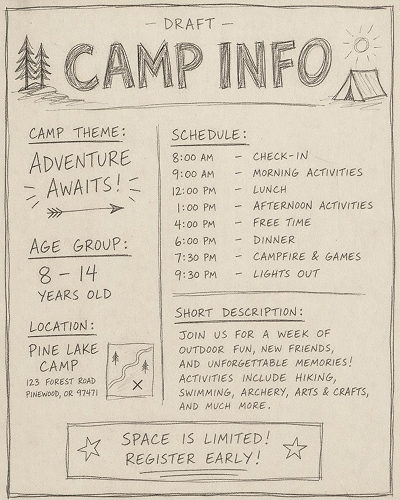 – DRAFT –
CAMP INFO
CAMP THEME:
ADVENTURE
AWAITS!
AGE GROUP:
8 – 14
YEARS OLD
LOCATION:
PINE LAKE
CAMP
123 FOREST ROAD
PINEWOOD, OR 97471
SCHEDULE:
8:00 AM – CHECK-IN
9:00 AM – MORNING ACTIVITIES
12:00 PM – LUNCH
1:00 PM – AFTERNOON ACTIVITIES
4:00 PM – FREE TIME
6:00 PM – DINNER
7:30 PM – CAMPFIRE & GAMES
9:30 PM – LIGHTS OUT
SHORT DESCRIPTION:
JOIN US FOR A WEEK OF
OUTDOOR FUN, NEW FRIENDS,
AND UNFORGETTABLE MEMORIES!
ACTIVITIES INCLUDE HIKING,
SWIMMING, ARCHERY, ARTS & CRAFTS,
AND MUCH MORE.
SPACE IS LIMITED!
REGISTER EARLY!